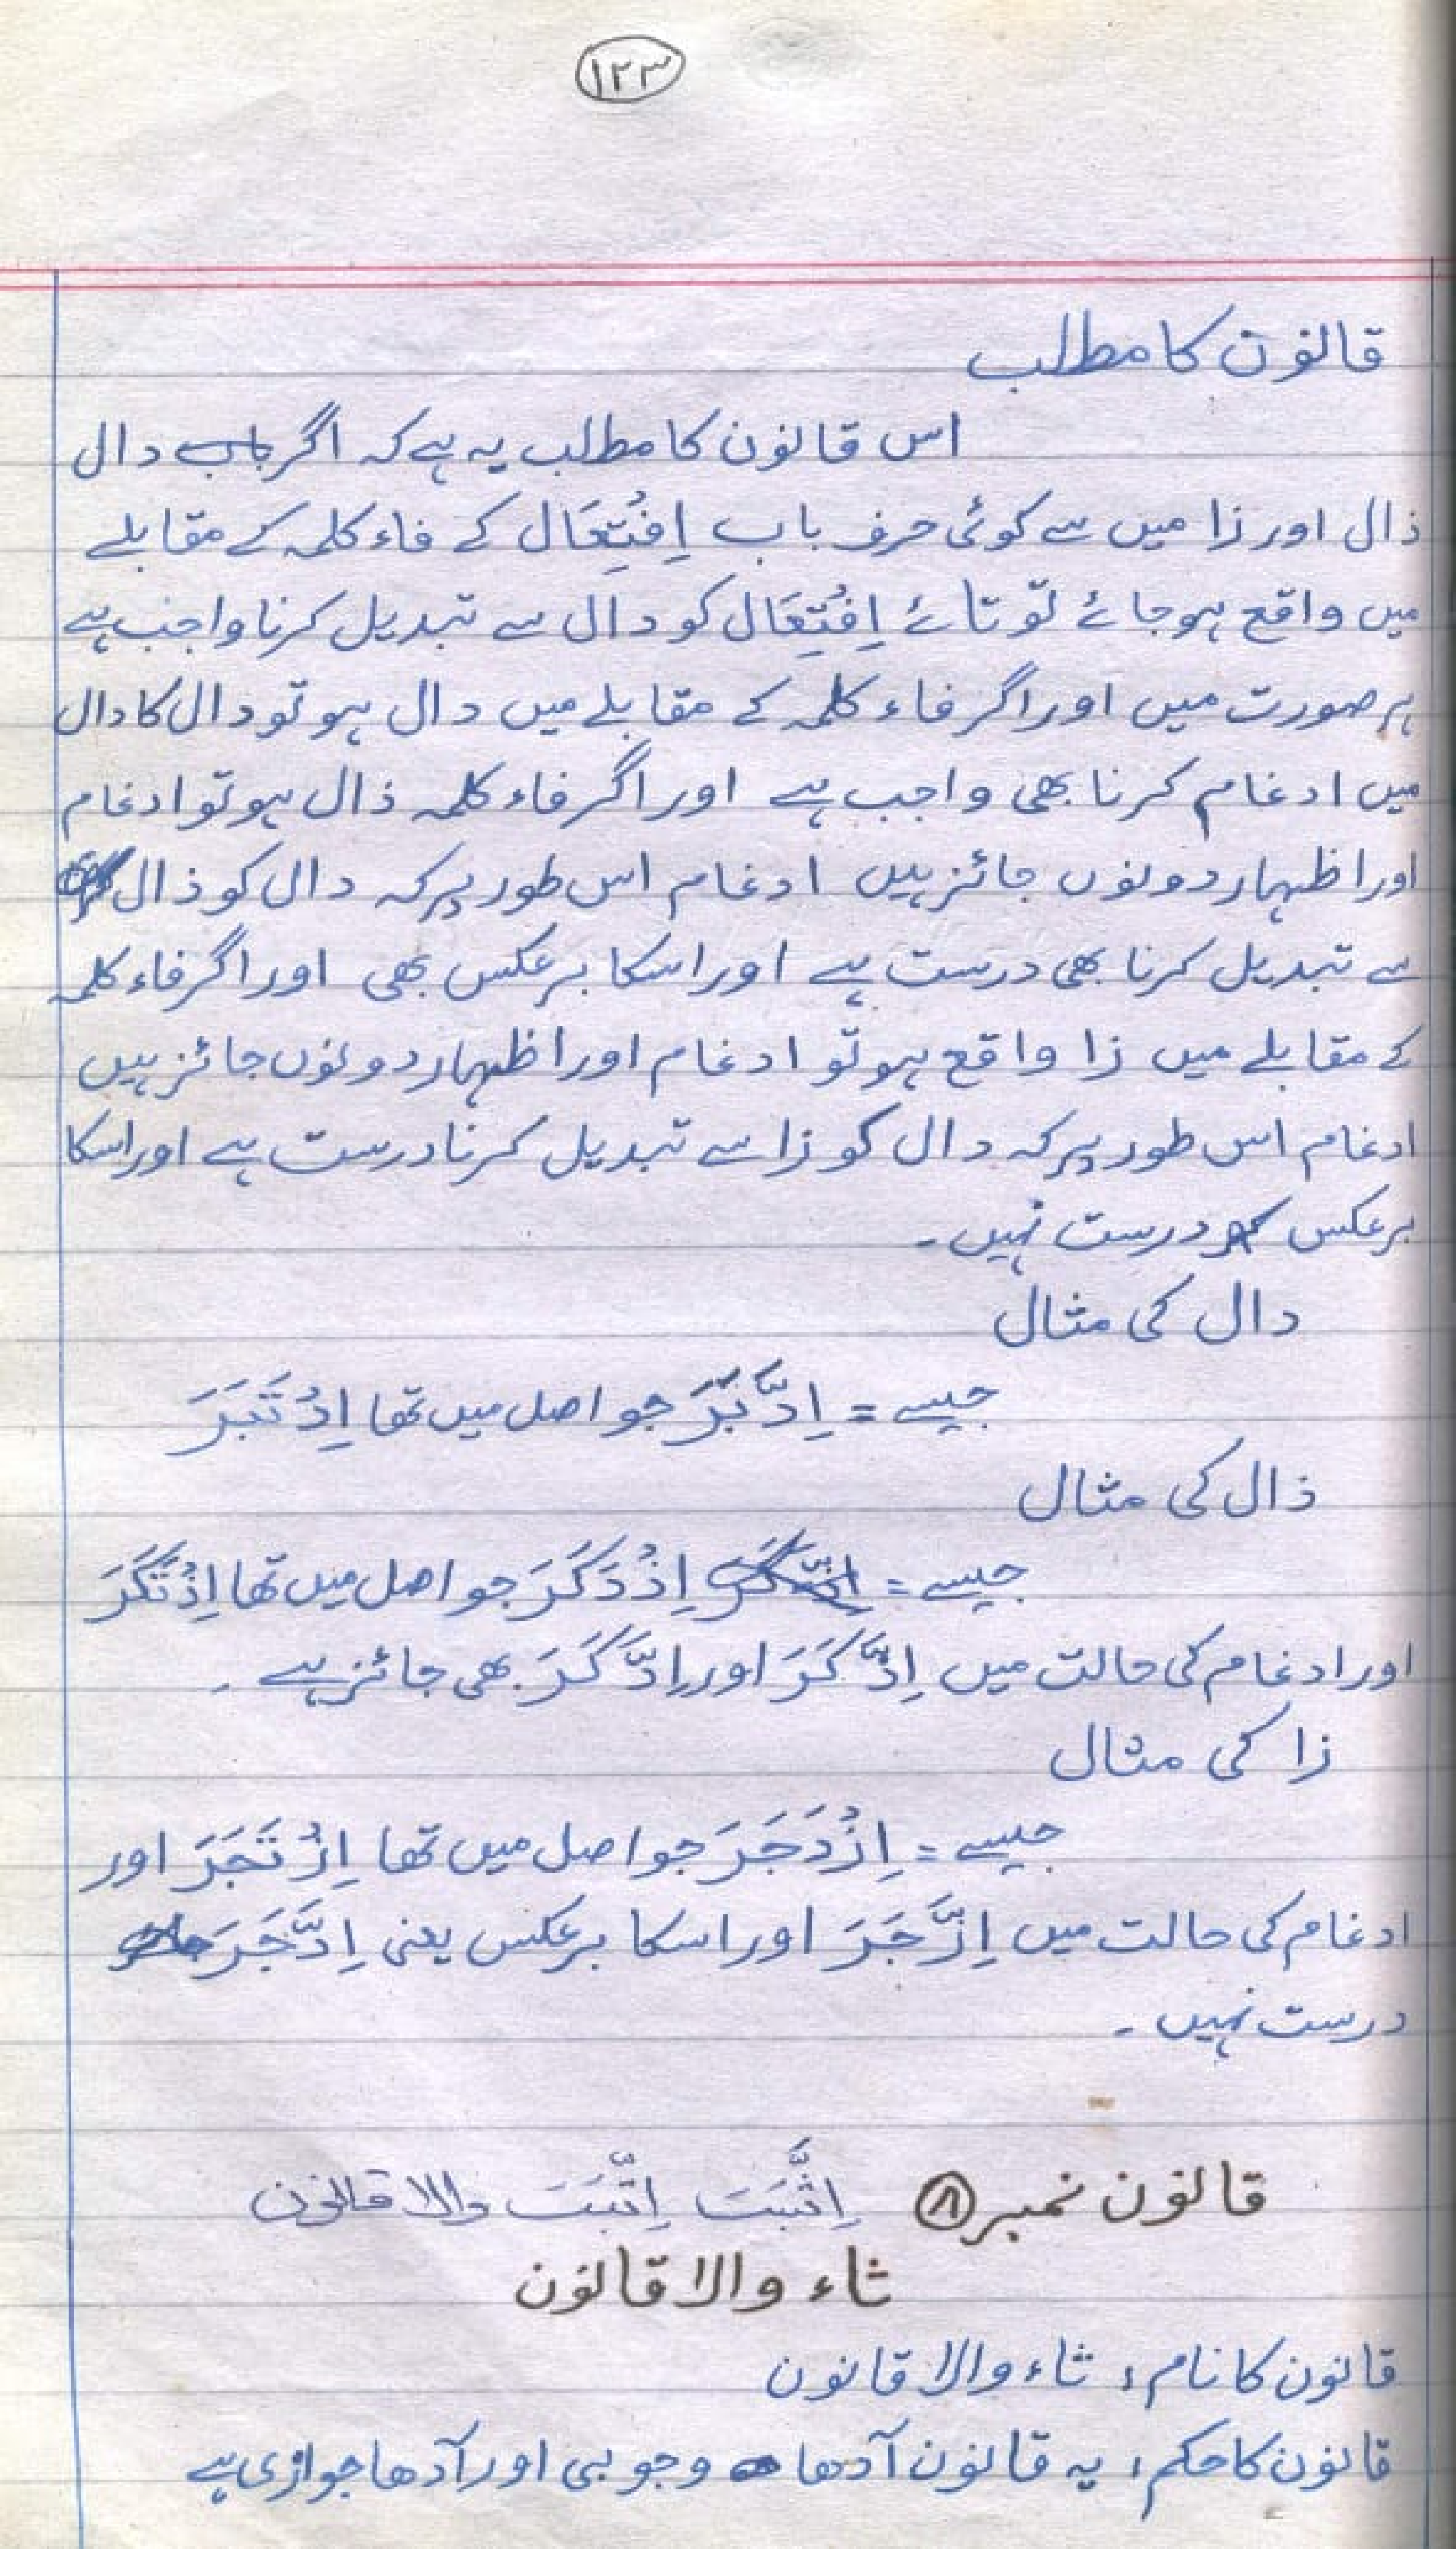 ۱۲۳
قانون کا مطلب
اس قانون کا مطلب یہ ہے کہ اگر دال
ذال اور زا میں سے کوئی حرف باب اِفْتِعَال کے فاء کلمہ کے مقابلے
میں واقع ہو جائے تو تائے اِفْتِعَال کو دال سے تبدیل کرنا واجب ہے
ہر صورت میں اور اگر فاء کلمہ کے مقابلے میں دال ہو تو دال کا دال
میں ادغام کرنا بھی واجب ہے اور اگر فاء کلمہ ذال ہو تو ادغام
اور اظہار دونوں جائز ہیں ادغام اس طور پر کہ دال کو ذال
سے تبدیل کرنا بھی درست ہے اور اسکا برعکس بھی اور اگر فاء کلمہ
کے مقابلے میں زا واقع ہو تو ادغام اور اظہار دونوں جائز ہیں
ادغام اس طور پر کہ دال کو زا سے تبدیل کرنا درست ہے اور اسکا
برعکس درست نہیں۔
دال کی مثال
جیسے = اِدَّبَرَ جو اصل میں تھا اِدْتَبَرَ
ذال کی مثال
جیسے = اِذْدَكَرَ جو اصل میں تھا اِذْتَكَرَ
اور ادغام کی حالت میں اِذَّكَرَ اور اِدَّكَرَ بھی جائز ہے۔
زا کی مثال
جیسے = اِزْدَجَرَ جو اصل میں تھا اِزْتَجَرَ اور
ادغام کی حالت میں اِزَّجَرَ اور اسکا برعکس یعنی اِدَّجَرَ
درست نہیں۔
قانون نمبر ۸ اِثَّبَتَ اِتَّبَتَ والا قانون
ثاء والا قانون
قانون کا نام؛ ثاء والا قانون
قانون کا حکم؛ یہ قانون آدھا وجوبی اور آدھا جوازی ہے